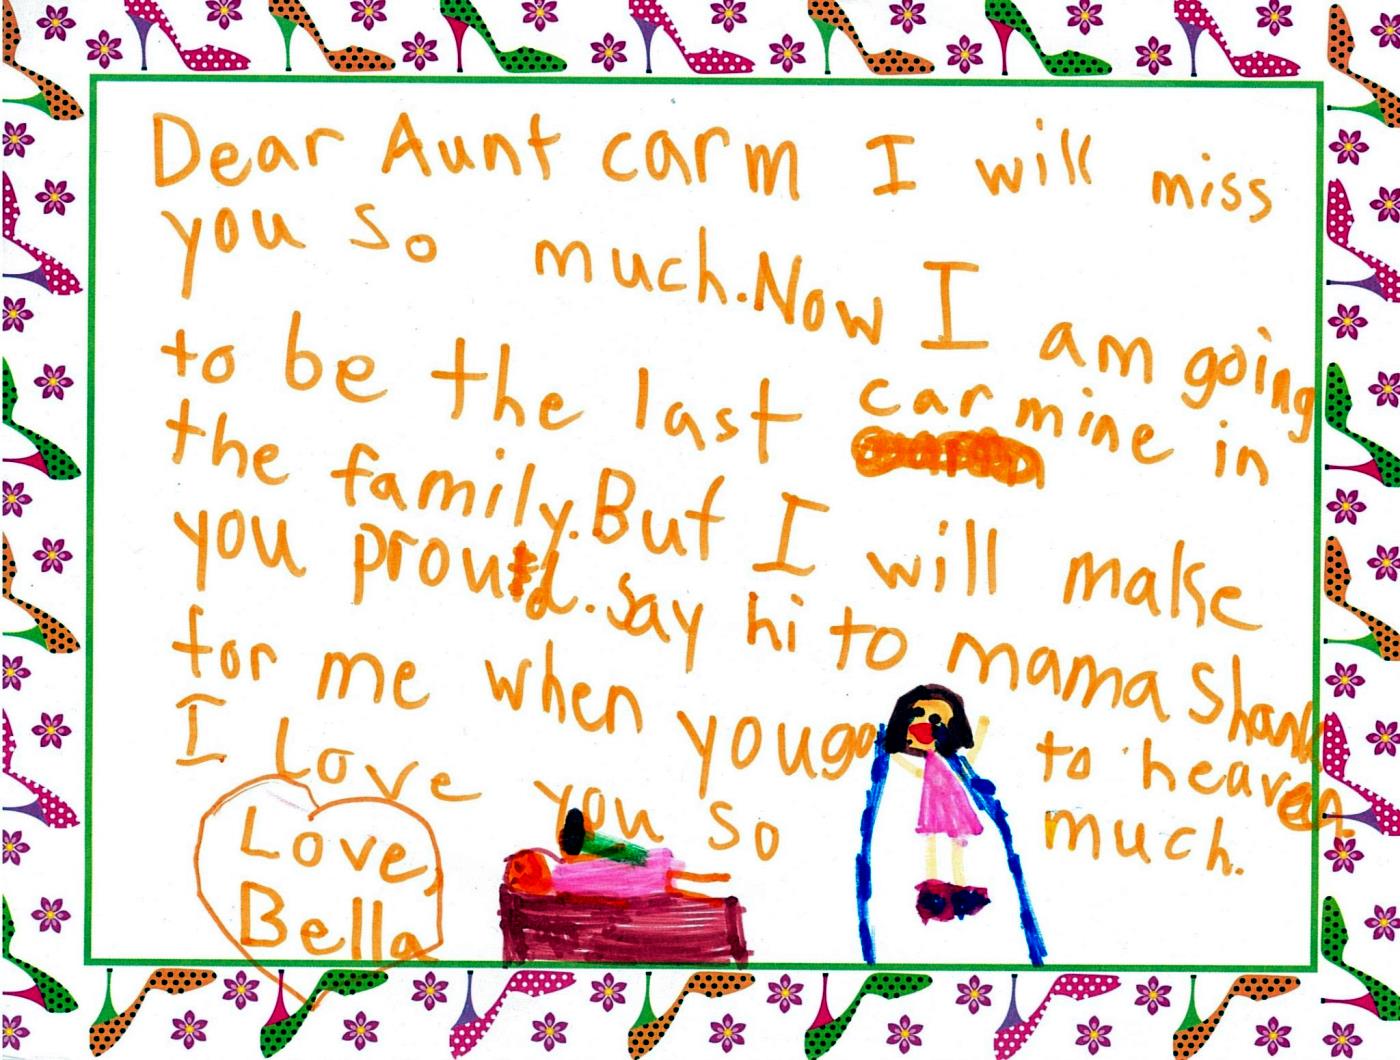 Dear Aunt carm I will miss
you so much. Now I am going
to be the last carmine in
the family. But I will make
you proud. Say hi to mama Shank
for me when you go to heaven
I Love you so much.
Love,
Bella